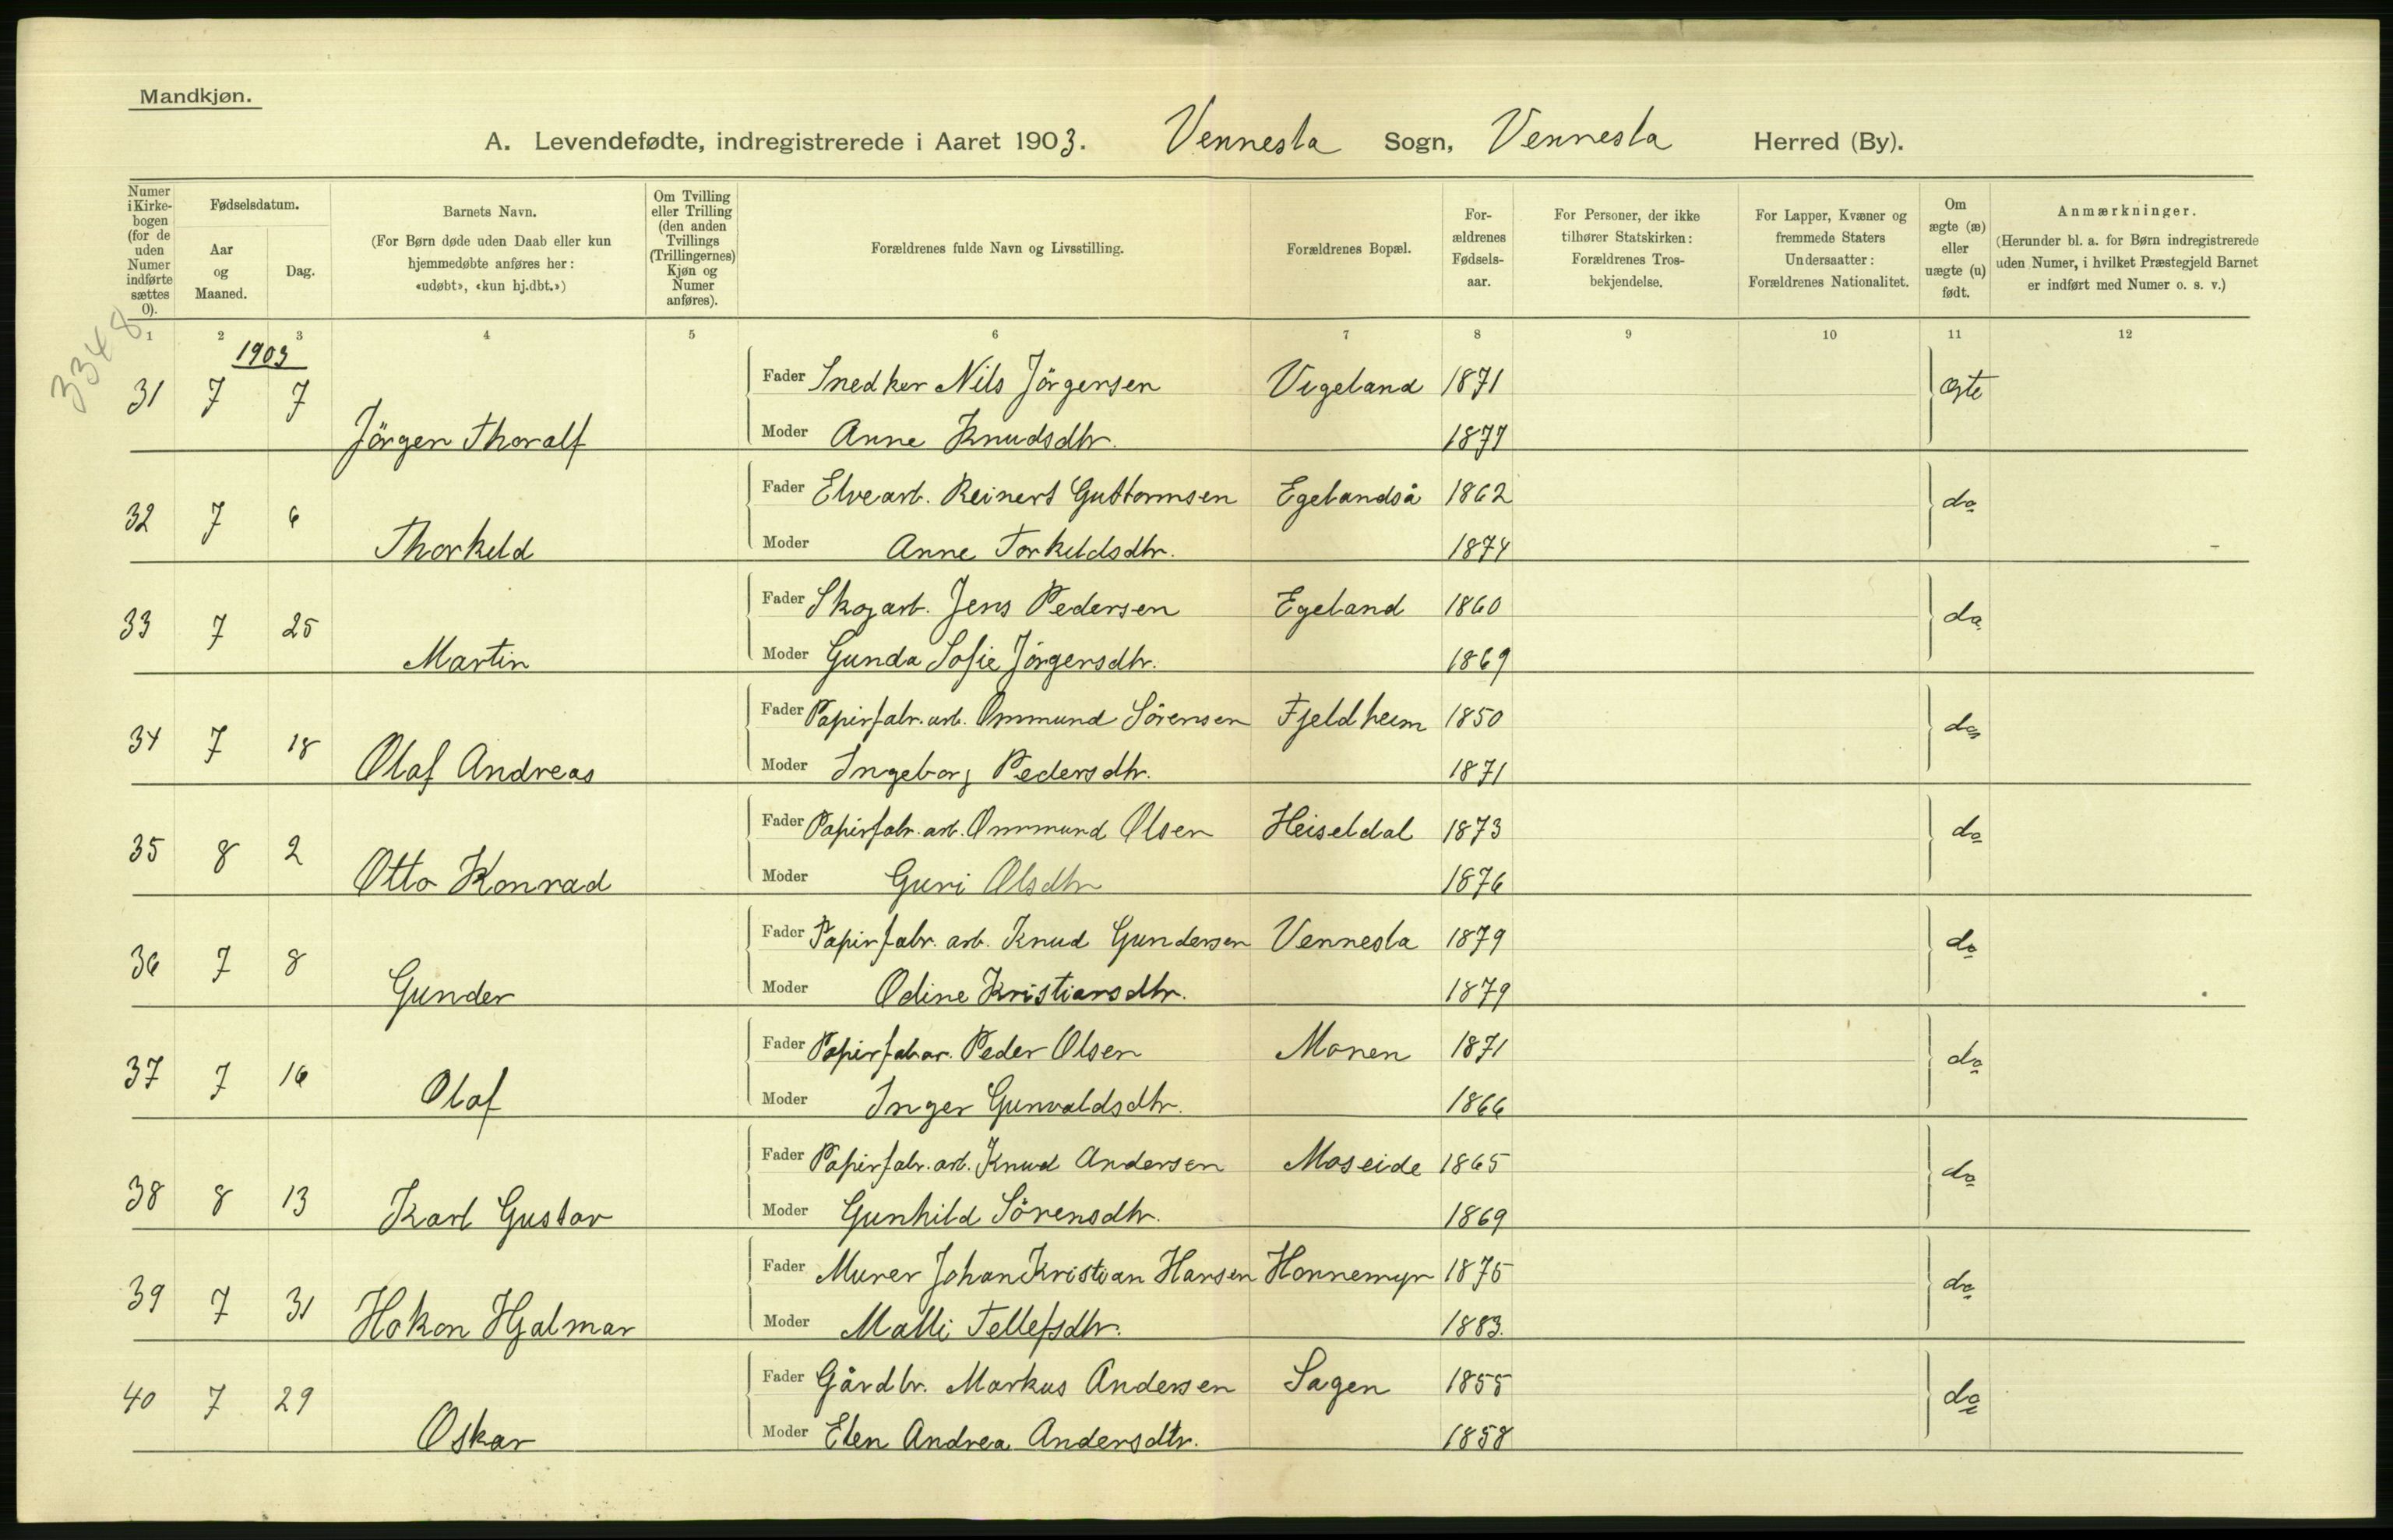 Mandkjøn.
A. Levendefødte, indregistrerede i Aaret 1903. Vennesla Sogn, Vennesla Herred (By).
Numer i Kirkebogen (for de uden Numer indførte sættes 0).
Fødselsdatum.
Aar og Maaned.
Dag.
Barnets Navn.
(For Børn døde uden Daab eller kun hjemmedøbte anføres her: «udøbt», «kun hj.dbt.»)
Om Tvilling eller Trilling (den anden Tvillings (Trillingernes) Kjøn og Numer anføres).
Forældrenes fulde Navn og Livsstilling.
Forældrenes Bopæl.
For-ældrenes Fødsels-aar.
For Personer, der ikke tilhører Statskirken: Forældrenes Tros-bekjendelse.
For Lapper, Kvæner og fremmede Staters Undersaatter: Forældrenes Nationalitet.
Om ægte (æ) eller uægte (u) født.
Anmærkninger.
(Herunder bl. a. for Børn indregistrerede uden Numer, i hvilket Præstegjeld Barnet er indført med Numer o. s. v.)
1 2 3 4 5 6 7 8 9 10 11 12
3348
1903
31 7 7 Fader Snedker Nils Jörgensen Vigeland 1871 ægte
Jörgen Thoralf Moder Anne Knudsdtr. 1877
32 7 6 Fader Elvearb. Reinert Guttormsen Egelandså 1862 do
Thorkeld Moder Anne Torkeldsdtr. 1874
33 7 25 Fader Skogarb. Jens Pedersen Egeland 1860 do
Martin Moder Gunda Sofie Jörgensdtr. 1869
34 7 18 Fader Papirfabr. arb. Ommund Sörensen Fjeldheim 1850 do
Olaf Andreas Moder Ingeborg Pedersdtr. 1871
35 8 2 Fader Papirfabr. arb. Ommund Olsen Heiseldal 1873 do
Otto Konrad Moder Guri Olsdtr 1876
36 7 8 Fader Papirfabr. arb. Knud Gundersen Vennesla 1879 do
Gunder Moder Odine Kristiansdtr. 1879
37 7 16 Fader Papirfabar. Peder Olsen Monen 1871 do
Olaf Moder Inger Gunvaldsdtr. 1866
38 8 13 Fader Papirfabr. arb. Knud Andersen Moseide 1865 do
Karl Gustav Moder Gunhild Sörensdtr. 1869
39 7 31 Fader Murer Johan Kristian Hansen Honnemyr 1875 do
Hakon Hjalmar Moder Malli Tellefsdtr. 1883.
40 7 29 Fader Gårdbr. Markus Andersen Sagen 1855 do
Oskar Moder Elen Andrea Andersdtr. 1858